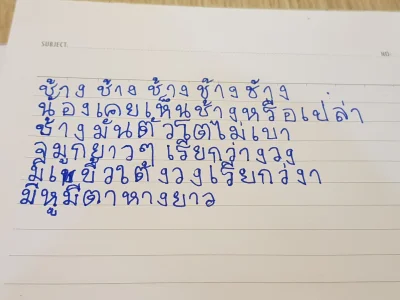 SUBJECT
NO.
ช้าง ช้าง ช้าง ช้าง ช้าง
น้องเคยเห็นช้างหรือเปล่า
ช้างมันตัวโตไม่เบา
จมูกยาวๆ เรียกว่างวง
มีเขี้ยวใต้งวงเรียกว่างา
มีหูมีตาหางยาว